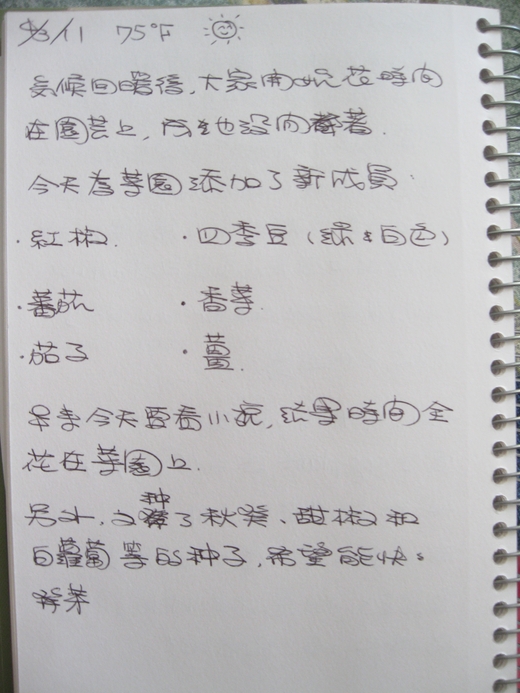 4/3/11 75°F
氣候回暖後,大家開始花時間
在園芸上,所以也沒閒著.
今天為菜園添加了新成員.
·紅椒. ·四季豆(綠&白色)
·蕃茄 ·香菜.
·茄子 ·薑.
本來今天要看小說,結果時間全
花在菜園上.
另外,又种了秋葵、甜椒和
白蘿蔔等的种子,希望能快.
發芽